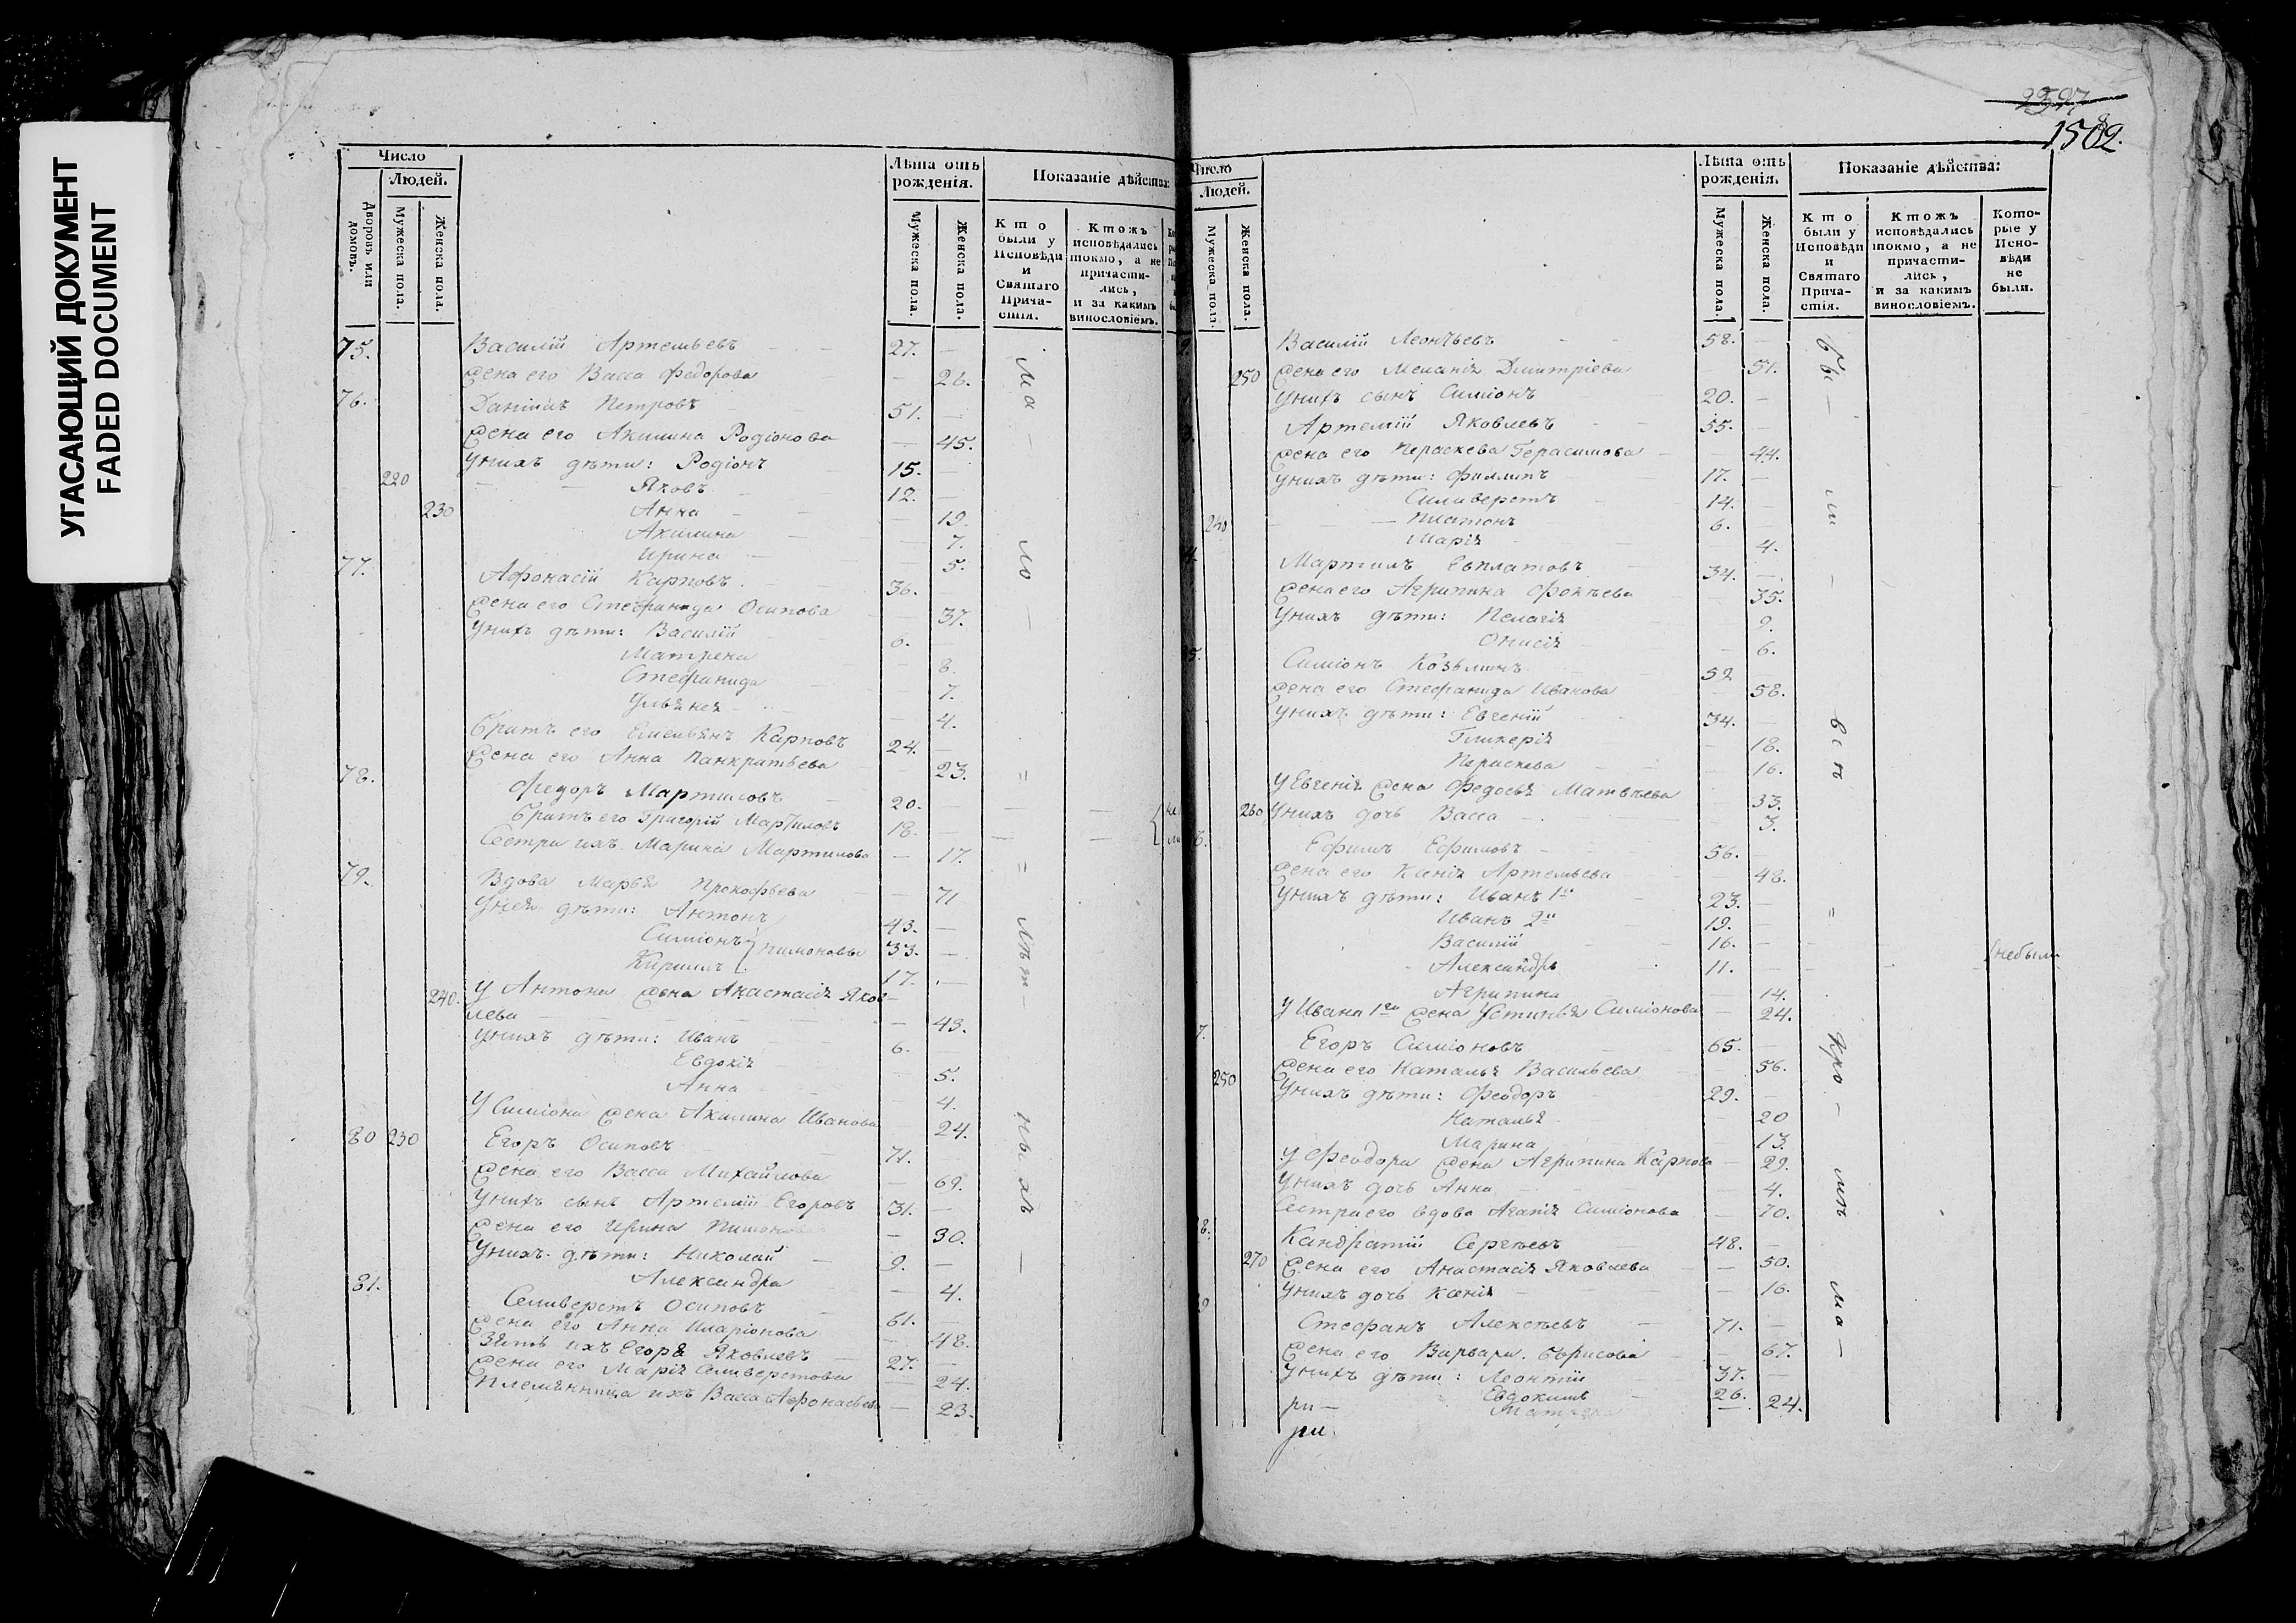 УГАСАЮЩИЙ ДОКУМЕНТ
FADED DOCUMENT
Число
Людей.
Дворовъ или домовъ.
Мужеска пола.
Женска пола.
Лѣта отъ рожденія.
Мужеска пола.
Женска пола.
Показаніе дѣйства:
Кто были у Исповѣди и Святаго Прича-стія.
Ктожъ исповѣдались токмо, а не причасти-лись, и за какимъ винословіемъ.
75. Василій Артемьевъ 27. —
Жена его Васса Федорова — 26.
76. Данiилъ Петровъ 51. —
Жена его Акилина Родіонова — 45.
У нихъ дѣти: Родіонъ 15. —
220 Яковъ 12. —
230 Анна — 19.
Акилина — 7.
Ирина — 5.
77. Афонасій Карповъ 36.
Жена его Стефанида Осипова — 37.
У нихъ дѣти: Василій 6.
Матрена — 8.
Стефанида — 7.
Ульянея — 4.
Братъ его Емельянъ Карповъ 24. —
Жена его Анна Панкратьева — 23.
78. Федоръ Мартиновъ 20. —
Братъ его Григорій Мартиновъ 18. —
Сестра ихъ Марина Мартинова — 17.
79. Вдова Марья Прокофьева — 71
У нея дѣти: Антонъ 43. —
Симіонъ } Пимоновы 33. —
Кирилъ 17. —
240. У Антона жена Анастасія Яков-
лева — 43.
У нихъ дѣти: Иванъ 6. —
Евдокія — 5.
Анна — 4.
У Симіона жена Акилина Иванова — 24.
80 230 Егоръ Осиповъ 71.
Жена его Васса Михайлова — 69.
У нихъ сынъ Артемій Егоровъ 31. —
Жена его Ирина — 30.
У нихъ дѣти: Николай 9. —
Александра — 4.
81. Селиверстъ Осиповъ 61. —
Жена его Анна Иларіонова — 48.
Зять ихъ Егоръ Яковлевъ 27. —
Жена его Марія Селиверстова 24.
Племянница ихъ Васса Афонасьева — 23.
2397
1502.
Число
Людей.
Мужеска пола.
Женска пола.
Лѣта отъ рожденія.
Мужеска пола.
Женска пола.
Показаніе дѣйства:
Кто были у Исповѣди и Святаго Прича-стія.
Ктожъ исповѣдались токмо, а не причасти-лись, и за какимъ винословіемъ.
Кото-рые у Испо-вѣди не были.
Василій Леонтьевъ 58. —
250 Жена его Меланія Дмитріева — 51.
У нихъ сынъ Симіонъ 20. —
Артемій Яковлевъ 55. —
Жена его Параскева Герасимова — 44.
У нихъ дѣти: Филипъ 17. —
Силиверстъ 14. —
240 Платонъ 6. —
Марія — 4.
Мартинъ Евплатовъ 34. —
Жена его Агрипина Фокѣева 35.
У нихъ дѣти: Пелагія 9.
Онисія — 6.
Симіонъ Козьминъ 52
Жена его Стефанида Иванова — 58.
У нихъ дѣти: Евгеній 34. —
Гликерія — 18.
Параскева — 16.
У Евгенія жена Федосья Матвѣева 33.
260 У нихъ дочь Васса 3.
Ефимъ Ефимовъ 56. —
Жена его Ксенія Артемьева 48.
У нихъ дѣти: Иванъ 1й 23. —
Иванъ 2й 19. —
Василій 16. —
Александръ 11. — небылъ
Агрипина — 14.
У Ивана 1го жена Устинья Симіонова — 24.
Егоръ Симіоновъ 65. —
250 Жена его Наталья Васильева 56.
У нихъ дѣти: Феодоръ 29. —
Наталья 20
Марина 13.
У Феодора жена Агрипина Карпова — 29.
У нихъ дочь Анна — 4.
Сестра его вдова Агапія Симіонова — 70.
Кандратій Сергѣевъ 48. —
270 Жена его Анастасія Яковлева — 50.
У нихъ дочь Ксенія — 16.
Стефанъ Алексѣевъ 71. —
Жена его Варвара Борисова — 67.
У нихъ дѣти: Леонтій 37. —
Евдокимъ 26.
ри— Матрена — 24.
ри.